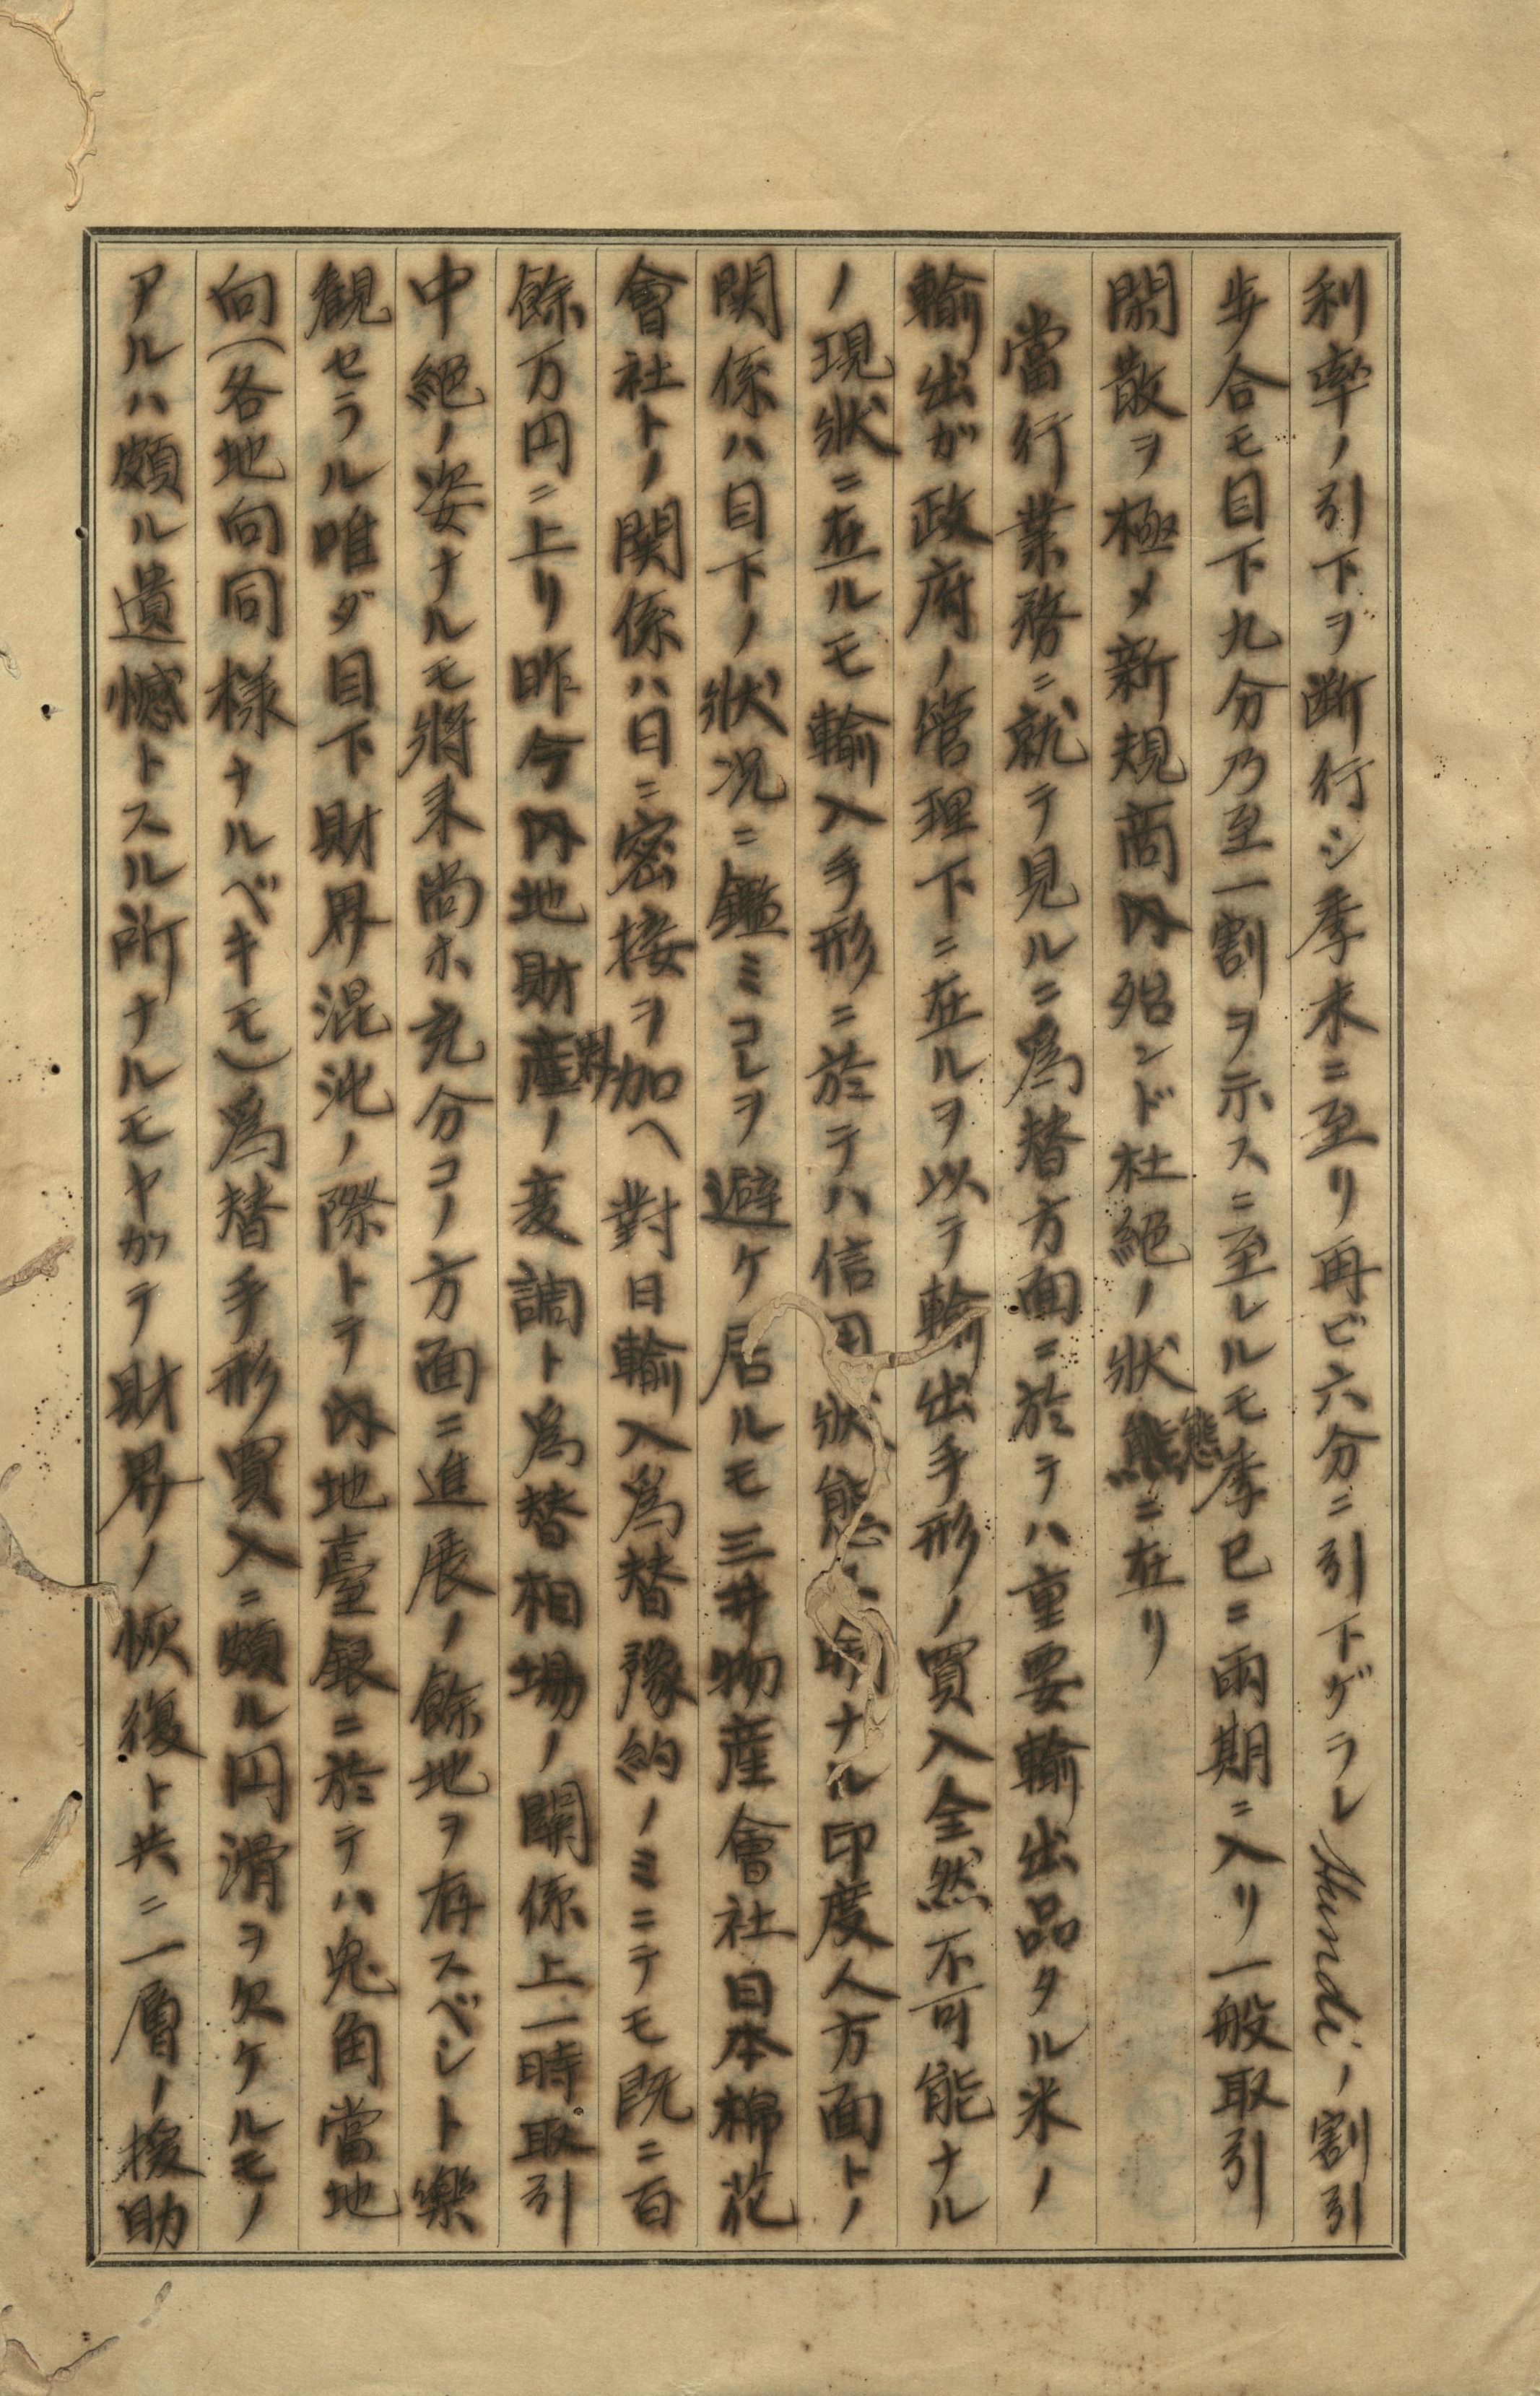 利率ノ引下ヲ断行シ季末ニ至リ再ビ六分ニ引下ゲラレHundiノ割引
歩合モ目下九分乃至一割ヲ示スニ至レルモ季已ニ雨期ニ入リ一般取引
閑散ヲ極メ新規商内殆ンド杜絶ノ状態ニ在リ
當行業務ニ就テ見ルニ為替方面ニ於テハ重要輸出品タル米ノ
輸出ガ政府ノ管理下ニ在ルヲ以テ輸出手形ノ買入全然不可能ナル
ノ現状ニ在ルモ輸入手形ニ於テハ信用状態不明ナル印度人方面トノ
関係ハ目下ノ状况ニ鑑ミコレヲ避ケ居ルモ三井物産會社日本棉花
會社トノ関係ハ日ニ密接ヲ加ヘ對日輸入為替豫約ノミニテモ既ニ百
餘万円ニ上リ昨今内地財界ノ変調ト為替相場ノ關係上一時取引
中絶ノ姿ナルモ將来尚ホ充分コノ方面ニ進展ノ餘地ヲ存スベシト樂
観セラル唯ダ目下財界混沌ノ際トテ内地臺銀ニ於テハ兎角當地
向(各地向同様ナルベキモ)為替手形買入ニ頗ル円滑ヲ欠ケルモノ
アルハ頗ル遺憾トスル所ナルモヤガテ財界ノ恢復ト共ニ一層ノ援助